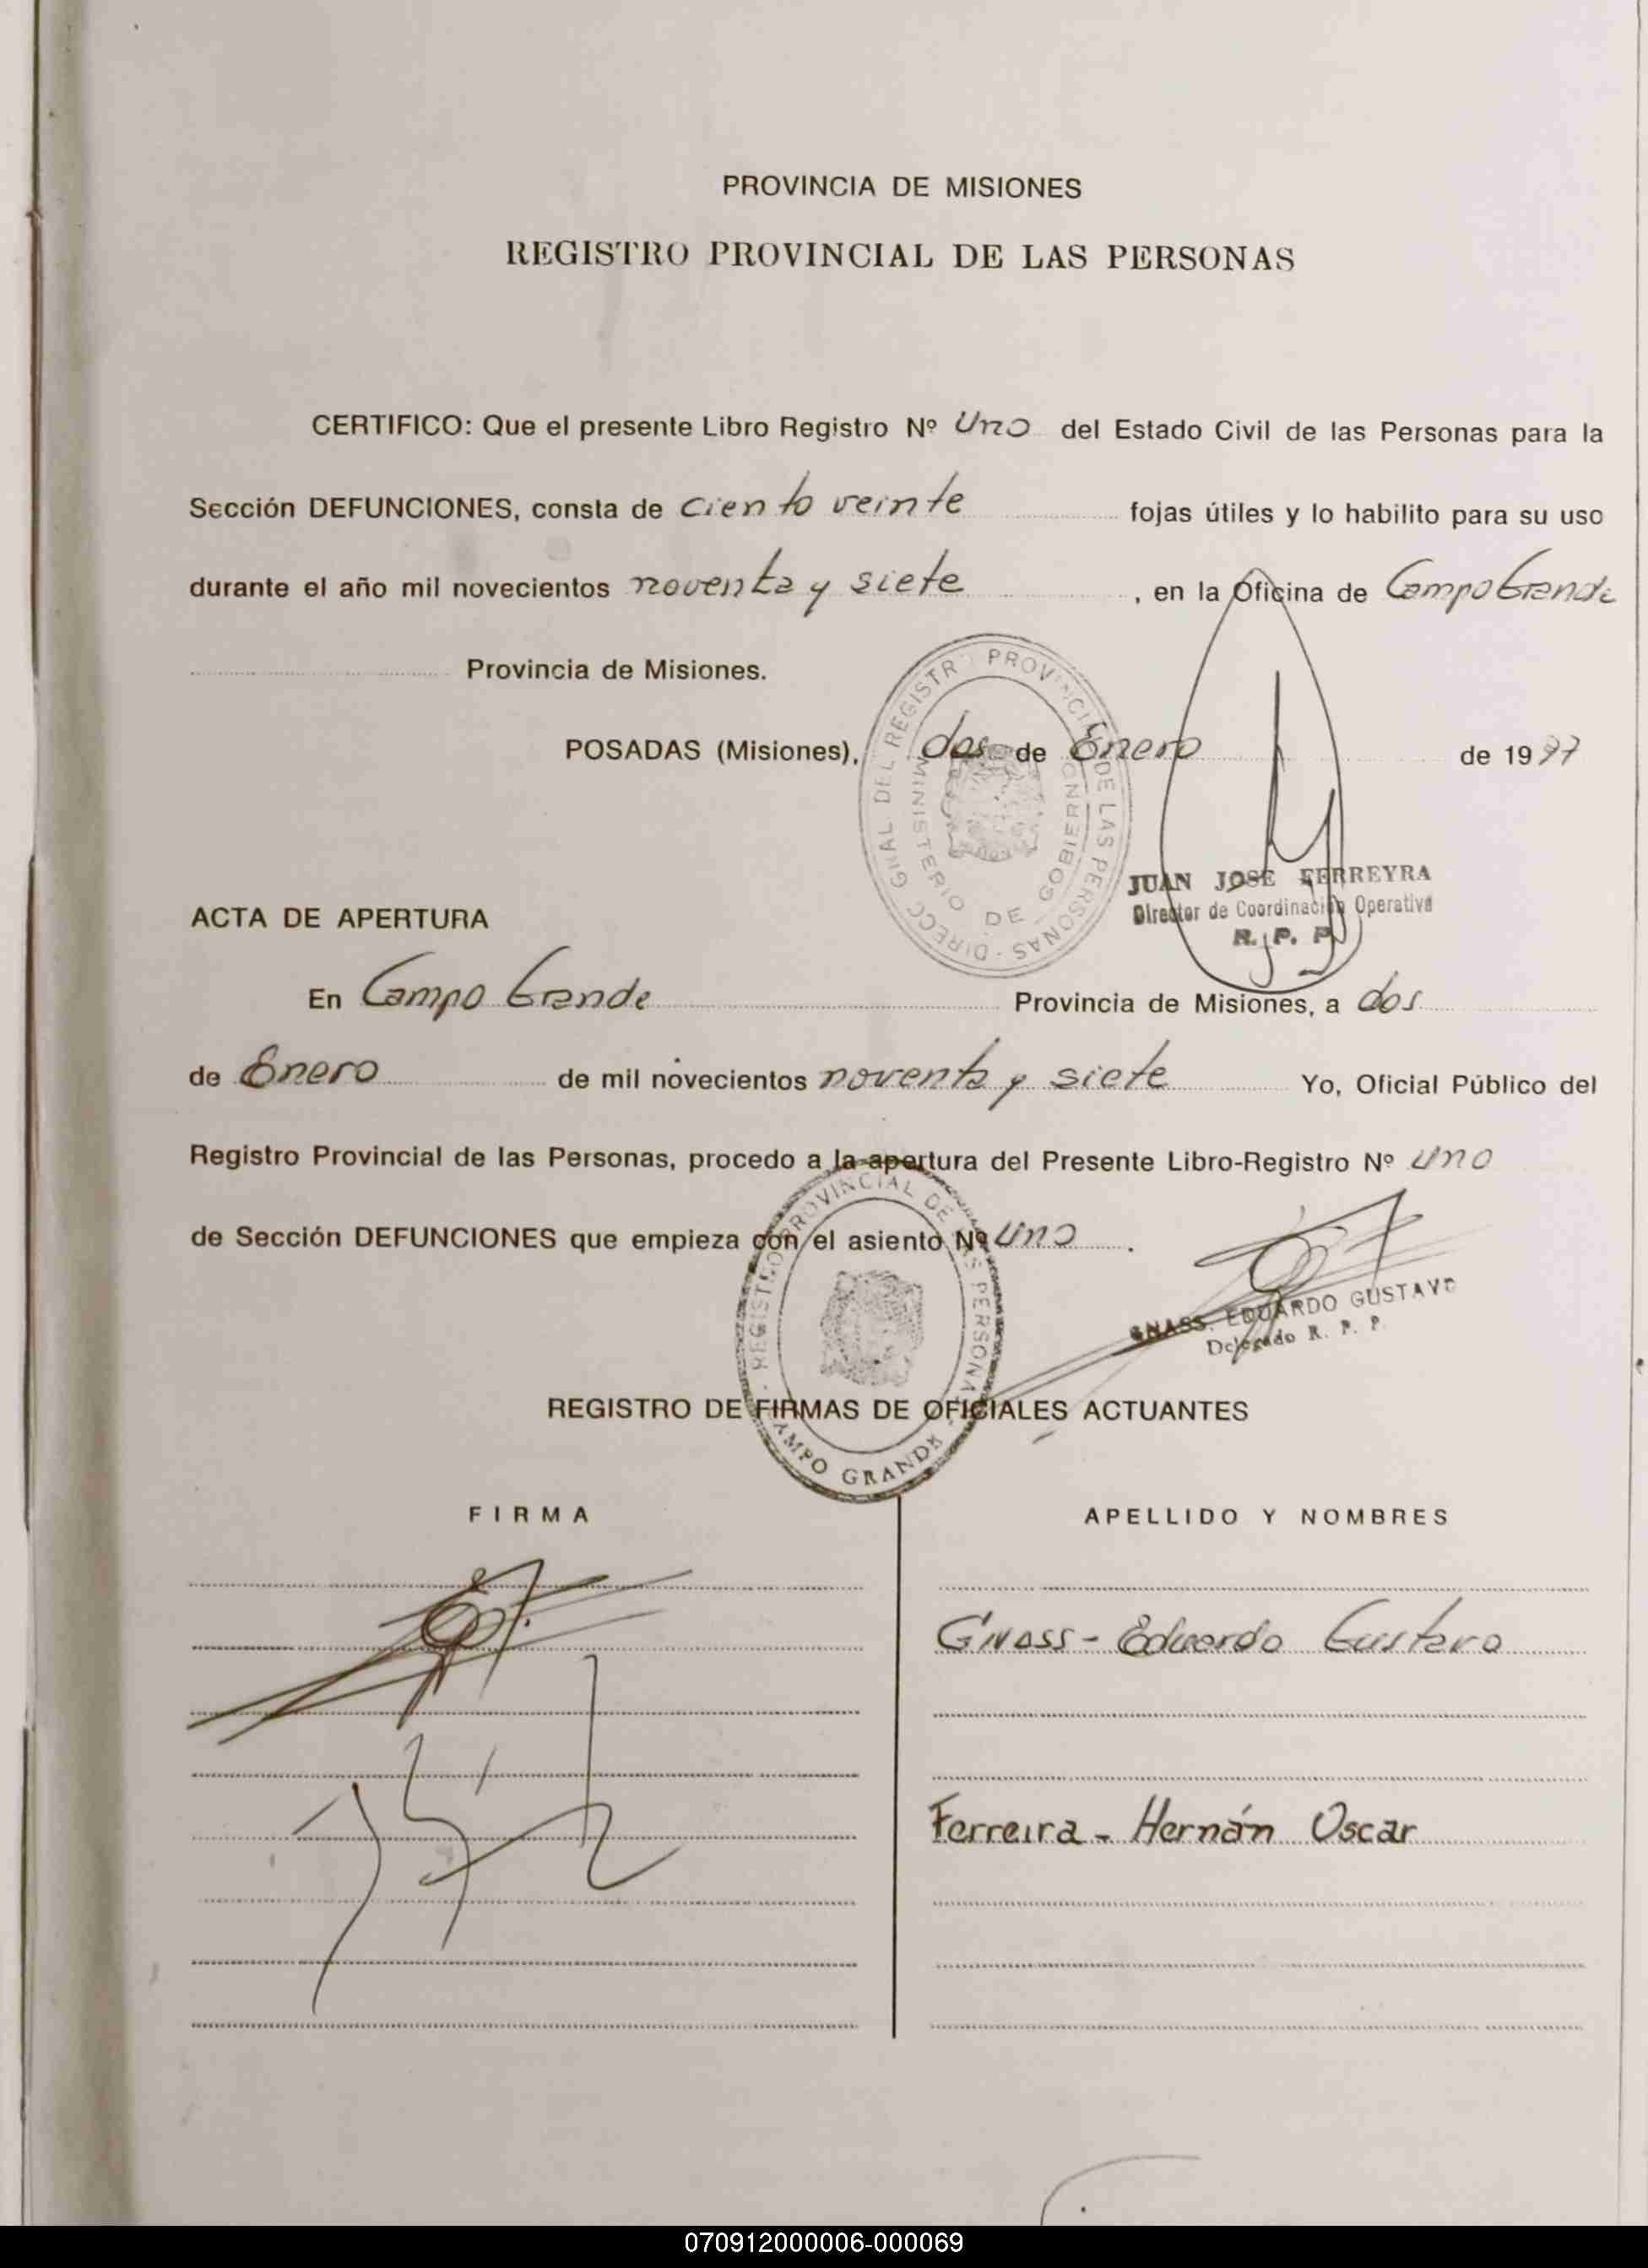 PROVINCIA DE MISIONES
REGISTRO PROVINCIAL DE LAS PERSONAS
CERTIFICO: Que el presente Libro Registro Nº Uno del Estado Civil de las Personas para la
Sección DEFUNCIONES, consta de ciento veinte fojas útiles y lo habilito para su uso
durante el año mil novecientos noventa y siete, en la Oficina de Campo Grande
Provincia de Misiones.
POSADAS (Misiones), dos de Enero de 1997
DIRECC GRAL. DEL REGISTR PROVINCIAL DE LAS PERSONAS
MINISTERIO DE GOBIERNO
JUAN JOSE FERREYRA
Director de Coordinación Operativa
R. P. P.
ACTA DE APERTURA
En Campo Grande Provincia de Misiones, a dos
de Enero de mil novecientos noventa y siete Yo, Oficial Público del
Registro Provincial de las Personas, procedo a la apertura del Presente Libro-Registro Nº uno
de Sección DEFUNCIONES que empieza con el asiento Nº uno.
REGISTRO PROVINCIAL DE LAS PERSONAS
CAMPO GRANDE
GNASS. EDUARDO GUSTAVO
Delegado R. P. P.
REGISTRO DE FIRMAS DE OFICIALES ACTUANTES
FIRMA
APELLIDO Y NOMBRES
Gnass - Eduardo Gustavo
Ferreira - Hernán Oscar
070912000006-000069